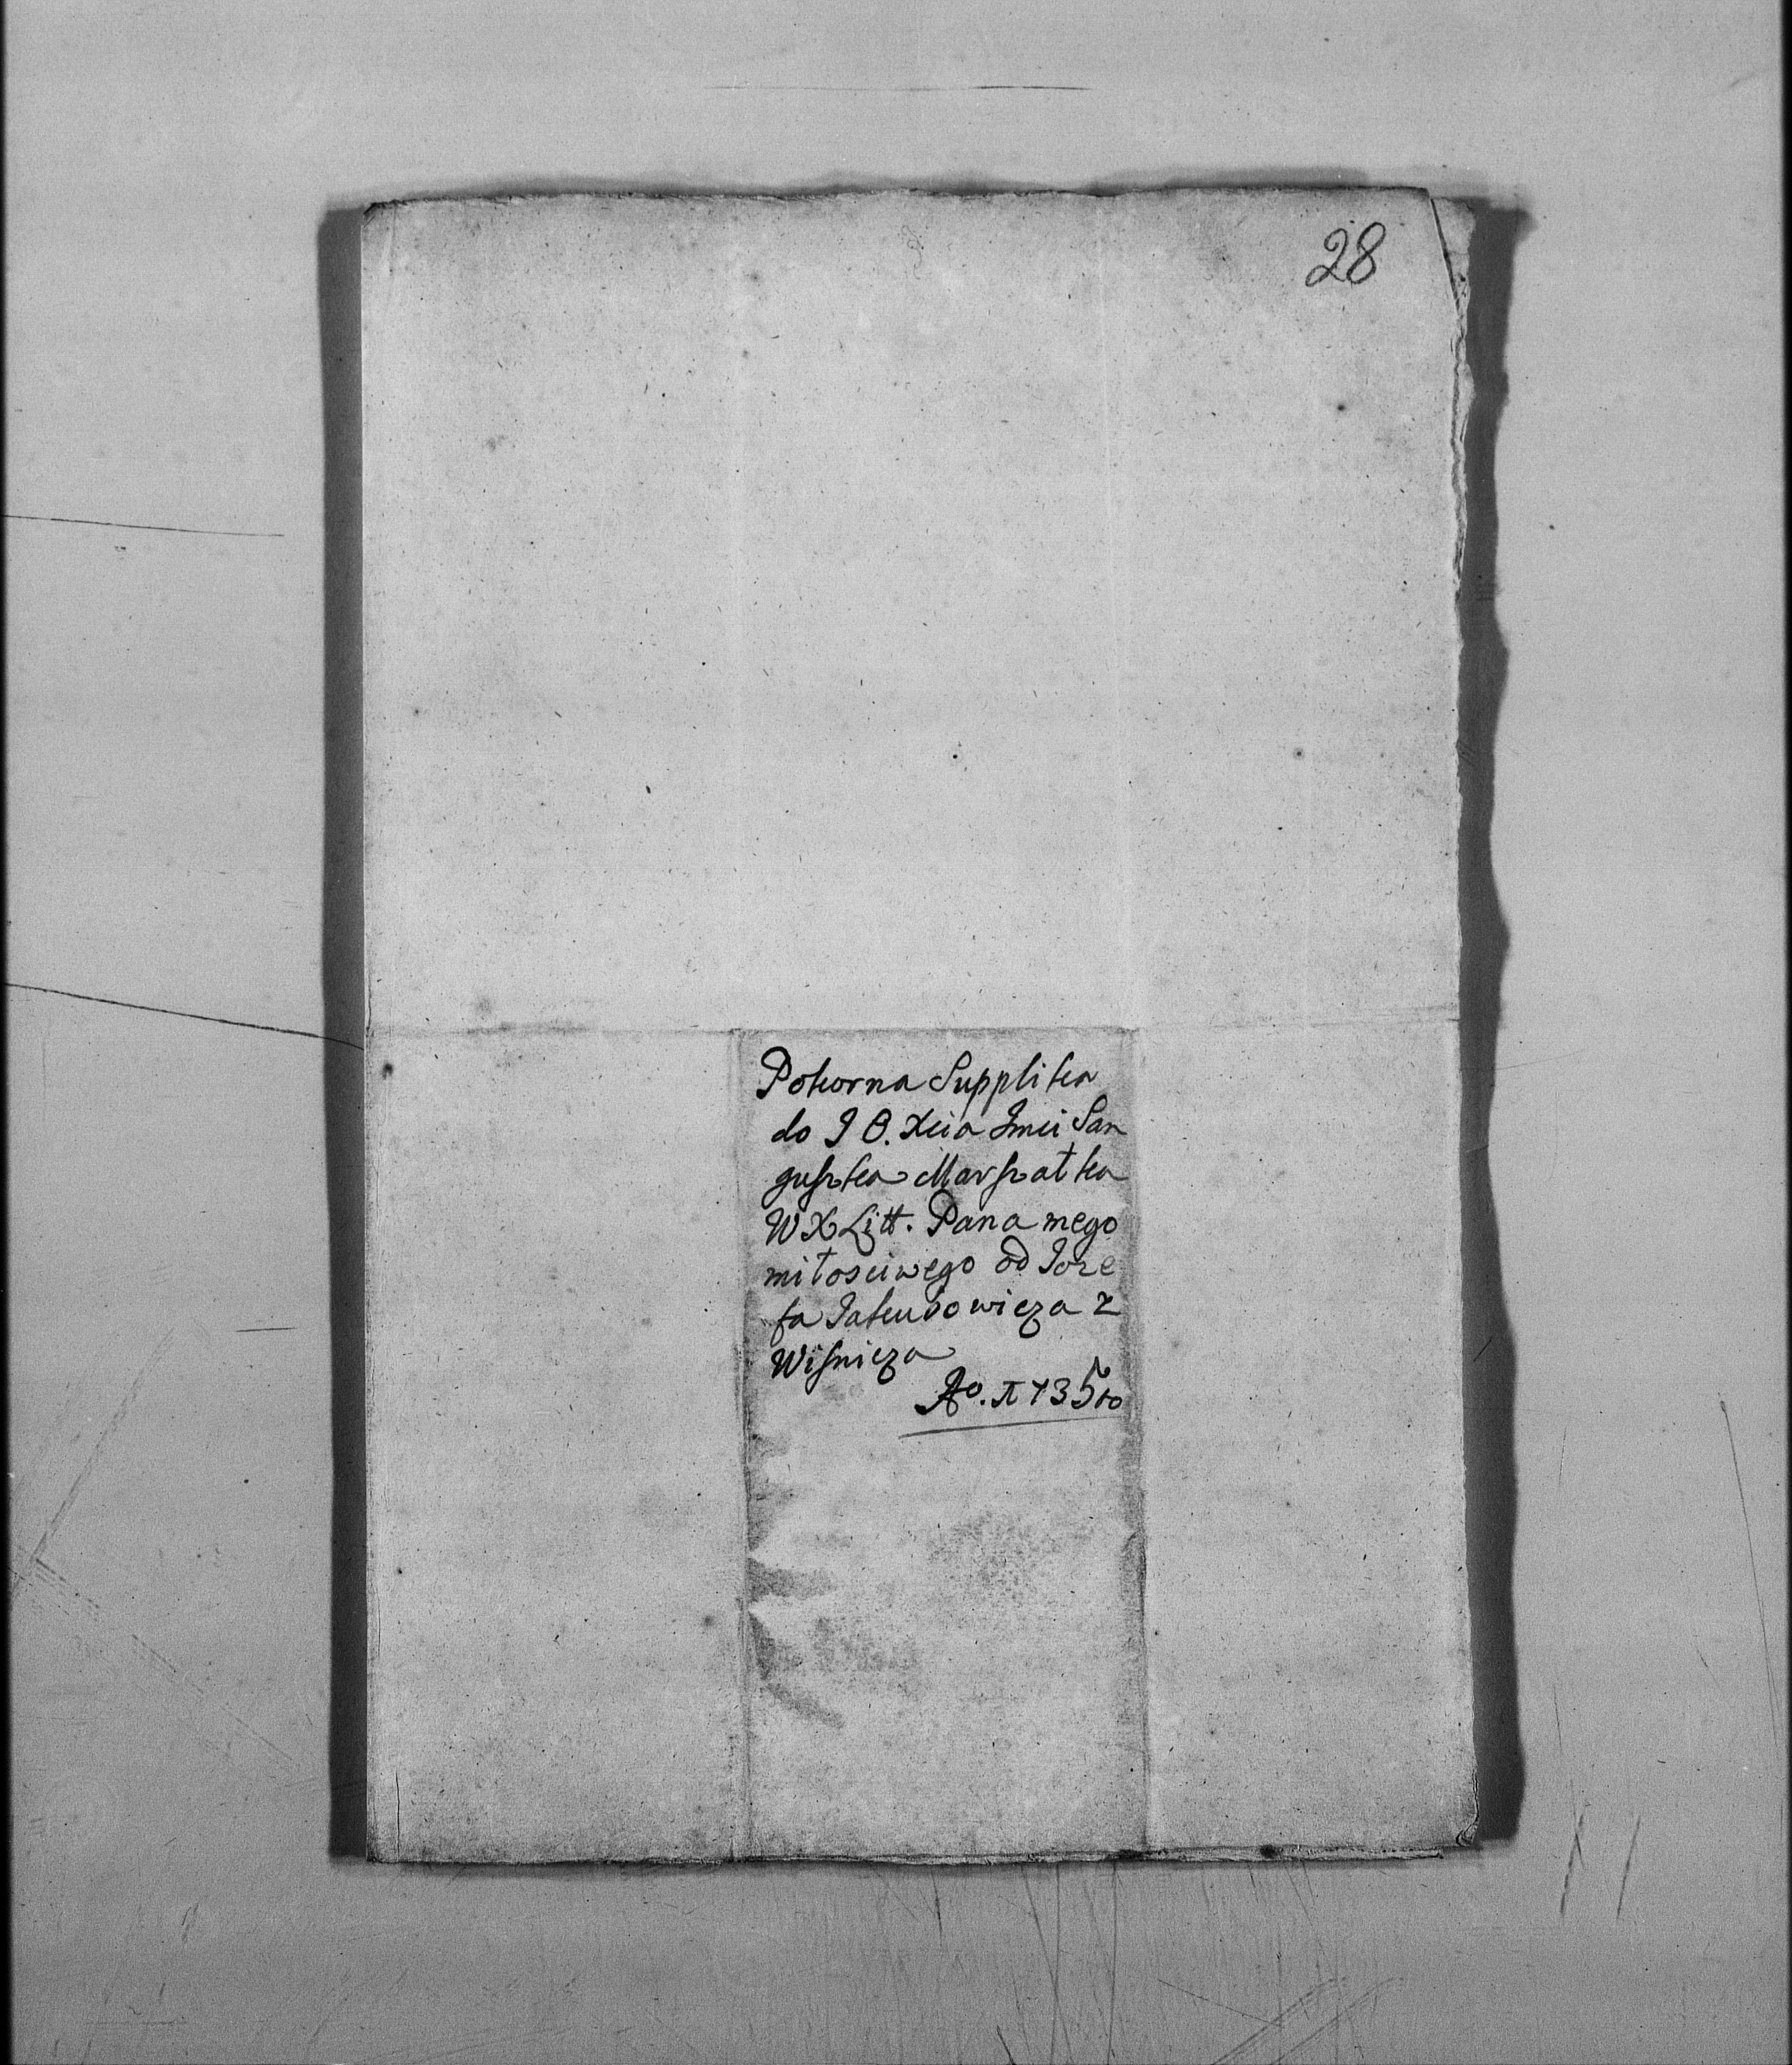 28
Pokorna Supplika
do J O. Xcia Jmci San
guszka Marszałka
W X Litt. Pana mego
miłosciwego od Joze
fa Jakubowicza z
Wisnicza
Ao. 1735to